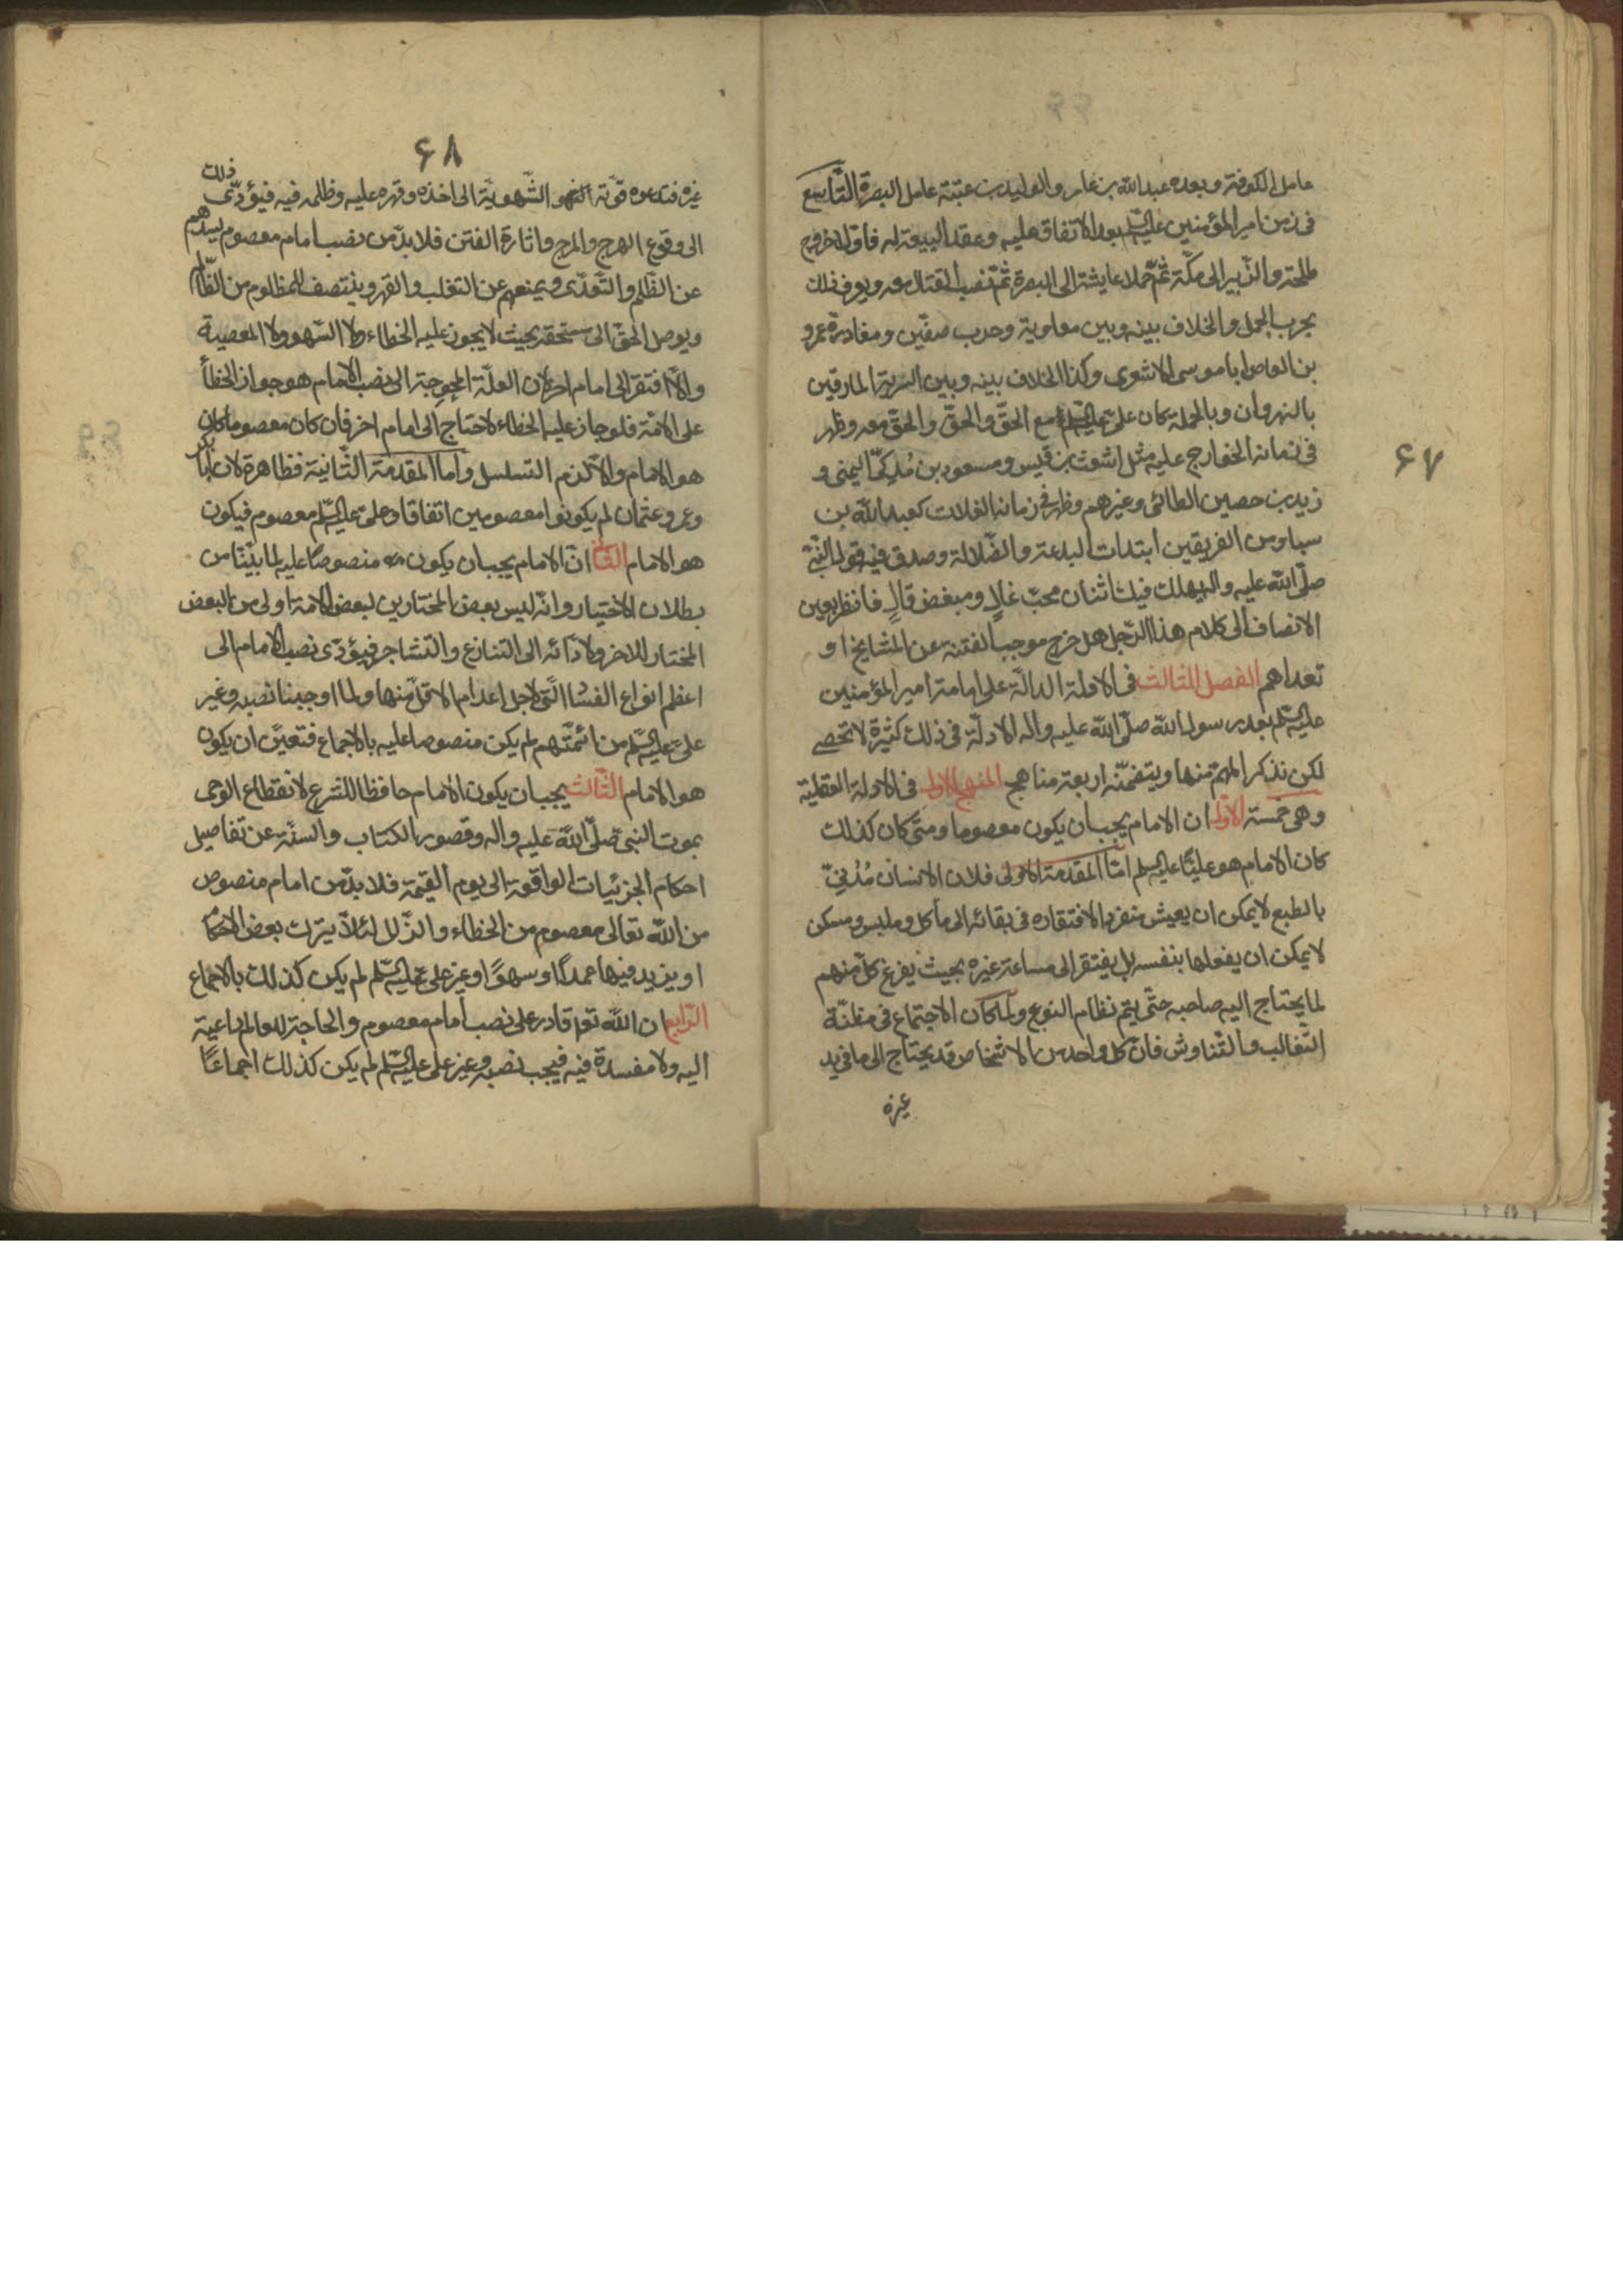 ۶۷
عامل الكوفة و بعده عبد الله بن عامر والوليد بن عتبة عامل البصرة التّاسع
فى زمن امير المؤمنين عليه السلم بعد الاتفاق عليه وعقد البيعة له فاوّلا خروج
طلحة والزّبير الى مكّة ثمّ حملا عايشة الى البصرة ثمّ نصب القتال معه ويعرف ذلك
بحرب الجمل والخلاف بينه وبين معاوية وحرب صفّين ومغادرة عمرو
بن العاص ابا موسى الاشعرى وكذا الخلاف بينه وبين الشرية المارقين
بالنهروان وبالجملة كان علىّ عليه السلم مع الحقّ والحقّ معه وظهر
فى زمانه الخوارج عليه مثل اشعث بن قيس ومسعود بن مُذكىّ اليمنى و
زيد بن حصين الطائى وغيرهم وظهر فى زمانه الغلات كعبد الله بن
سبا ومن الفريقين ابتدات البدعة والضّلالة وصدق فيه قول النّبىّ
صلّى الله عليه واله يهلك فيك اثنان محبّ غالٍ ومبغض قالٍ فانظر بعين
الانصاف الى كلام هذا الرّجل هل خرج موجب الفتنة عن المشايخ او
تعداهم الفصل الثالث فى الادلة الدالّة على امامة امير المؤمنين
عليه السلم بعد رسول الله صلّى الله عليه واله الادلّة فى ذلك كثيرة لا تحصى
لكن نذكر المهمّ منها ويتضمّنه اربعة مناهج المنهج الاول فى الادلة العقلية
وهى خمسة الاوّل ان الامام يجب ان يكون معصوما ومتى كان كذلك
كان الامام هو عليًّا عليه السلم امّا المقدمة الاولى فلان الانسان مُدُنِىّ
بالطبع لا يمكن ان يعيش منفردا لافتقاره فى بقائه الى ماكل وملبس ومسكن
لا يمكن ان يفعلها بنفسه بل يفتقر الى مساعدة غيره بحيث يفرغ كلّ منهم
لما يحتاج اليه صاحبه حتّى يتمّ نظام النوع ولمّا كان الاجتماع فى مظنّة
التّغالب والتّناوش فانّ كل واحد من الاشخاص قد يحتاج الى ما فى يد
غيره
۶۸
غيره فتدعوه قوّته الشّهويّة الى اخذه وقهره عليه وظلمه فيه فيؤدّى ذلك
الى وقوع الهرج والمرج واثارة الفتن فلا بدّ من نصب امام معصوم يصدّهم
عن الظّلم والتّعدّى ويمنعهم عن التغلب والقهر وينتصف للمظلوم من الظّالم
ويوصل الحقّ الى مستحقه بحيث لا يجوز عليه الخطاء ولا السّهو ولا المعصية
والّا افتقر الى امام اخر لان العلّة المحوجة الى نصب الامام هو جواز الخطأ
على الامّة فلو جاز عليه الخطاء لاحتاج الى امام اخر فان كان معصوما كان
هو الامام والّا لزم التسلسل واما المقدمة الثّانية فظاهرة لان ابا بكر
وعمر وعثمان لم يكونوا معصومين اتفاقا وعلىّ عليه السّلم معصوم فيكون
هو الامام الثانى انّ الامام يجب ان يكون منصوصًا عليه لما بيّنّا من
بطلان الاختيار وانّه ليس بعض المختارين لبعض الامة اولى من البعض
المختار للاخر ولادائه الى التنازع والتشاجر فيؤدّى نصب الامام الى
اعظم انواع الفسٰا الّتى لاجل اعدام الاقلّ منها ولما اوجبنا نصبه وغير
علىّ عليه السّلم من ائمّتهم لم يكن منصوصا عليه بالاجماع فتعيّن ان يكون
هو الامام الثّالث يجب ان يكون الامام حافظا للشرع لانقطاع الوحى
بموت النبى صلّى الله عليه واله وقصور الكتاب والسنّة عن تفاصيل
احكام الجزئيات الواقعة الى يوم القيمة فلا بدّ من امام منصوص
من الله تعالى معصوم من الخطاء والزّلل لئلاّ يترك بعض الاحكام
او يزيد فيها عمدًا او سهوًا وغير علىّ عليه السّلم لم يكن كذلك بالاجماع
الرّابع ان الله تعا قادر على نصب امام معصوم والحاجة للعالم داعية
اليه ولا مفسدة فيه فيجب نصبه وغير على عليه السّلم لم يكن كذلك اجماعًا